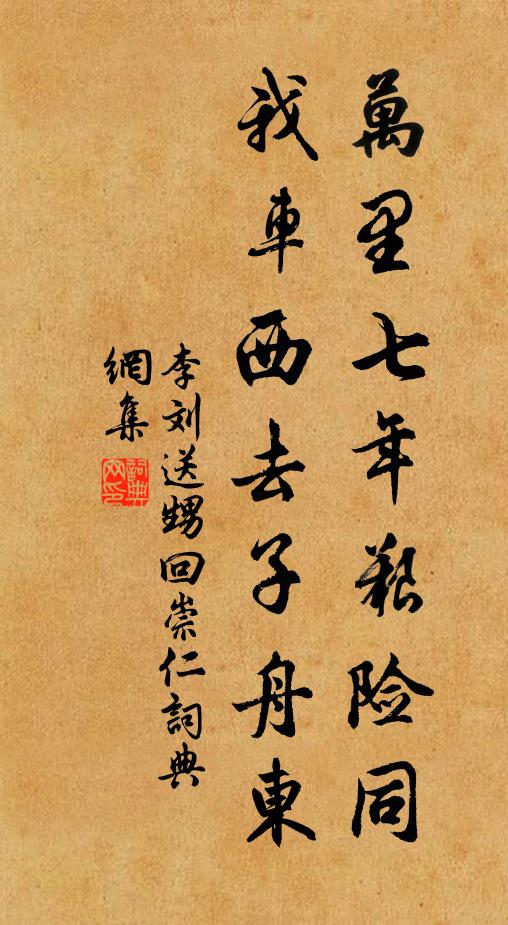 萬里七年艱险同
我車西去子舟東
李刘送甥回崇仁詞典
網集
詞典
网印